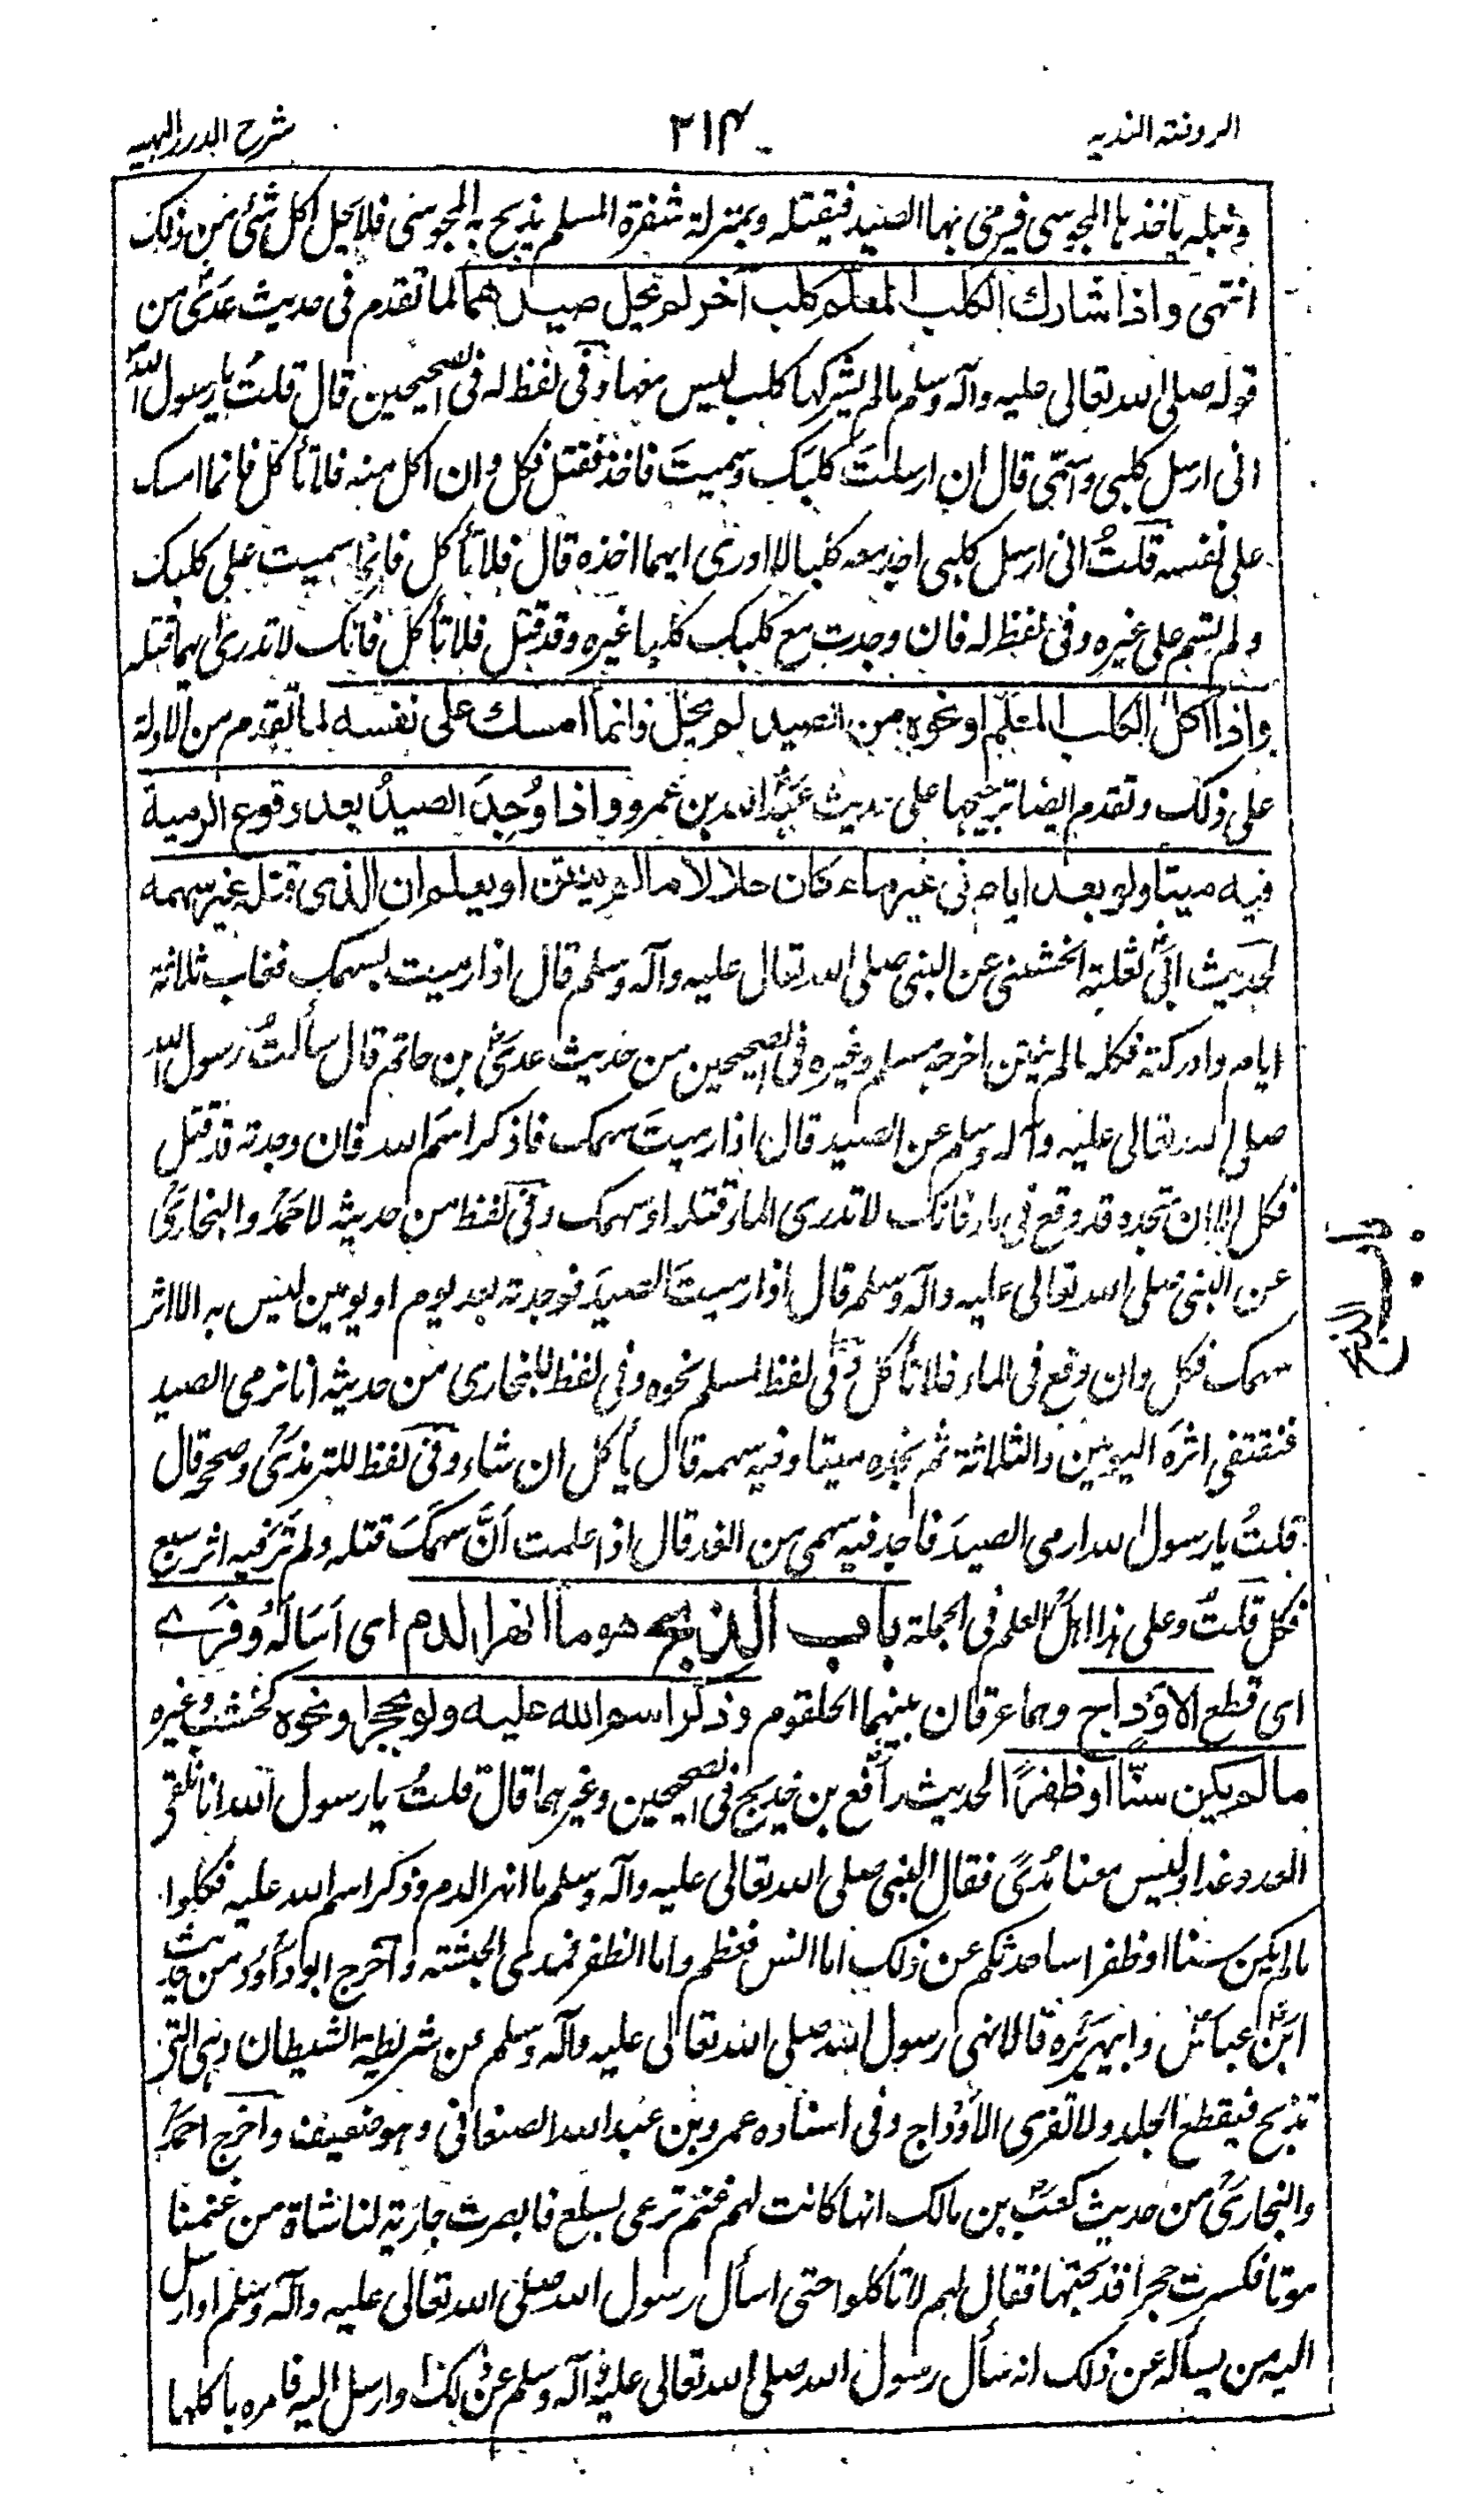 الروضة الندیه
۳۱۴
شرح الدرر البهیه
ونبله یأخذها المجوسی فیرمی بها الصید فیقتله وبمنزلة شفرة المسلم یذبح به المجوسی فلا یحل اکل شئ من ذلک
انتهی واذا شارک الکلب المعلم کلب آخر لم یحل صیدهما لما تقدم فی حدیث عدی من
قوله صلی الله تعالی علیه وآله وسلم ما لم یشرکها کلب لیس منها وفی لفظ له فی الصحیحین قال قلت یا رسول الله
انی ارسل کلبی واسمّی قال ان ارسلتَ کلبک وسمیتَ فاخذ فقتل فکل وان اکل منه فلا تأکل فانما امسک
علی نفسه قلتُ انی ارسل کلبی اجد معه کلبا لا ادری ایهما اخذه قال فلا تأکل فانما سمیت علی کلبک
ولم تسم علی غیره وفی لفظ له فان وجدت مع کلبک کلبا غیره وقد قتل فلا تأکل فانک لا تدری ایهما قتله
واذا اکل الکلب المعلم او نحوه من الصید لم یحل فانما امسک علی نفسه لما تقدم من الادلة
علی ذلک وتقدم ایضا ترجیحها علی حدیث عبد الله بن عمرو واذا وُجِدَ الصیدُ بعد وقوع الرمیة
فیه میتا ولو بعد ایام فی غیر ماء کان حلالا ما لم ینتن او یعلم ان الذی قتله غیر سهمه
لحدیث ابی ثعلبة الخشنی عن النبی صلی الله تعالی علیه وآله وسلم قال اذا رمیت بسهمک فغاب ثلاثة
ایام وادرکته فکله ما لم ینتن اخرجه مسلم وغیره فی الصحیحین من حدیث عدی بن حاتم قال سألتُ رسول الله
صلی الله تعالی علیه وآله وسلم عن الصید قال اذا رمیتَ سهمک فاذکر اسمَ الله فان وجدته قد قتل
فکل الا ان تجده قد وقع فی ماء فانک لا تدری الماء قتله او سهمک وفی لفظ من حدیثه لاحمد والبخاری
عن النبی صلی الله تعالی علیه وآله وسلم قال اذا رمیتَ الصیدَ فوجدته بعد یوم او یومین لیس به الا اثر
سهمک فکل وان وقع فی الماء فلا تأکل وفی لفظ لمسلم نحوه وفی لفظ للبخاری من حدیثه انا نرمی الصید
فنقتفی اثره الیومین والثلاثة ثم نجده میتا وفیه سهمه قال یأکل ان شاء وفی لفظ للترمذی وصححه قال
قلتُ یا رسول الله ارمی الصیدَ فاجد فیه سهمی من الغد قال اذا علمت اَنَّ سهمکَ قتله ولم تَرَ فیه اثر سبع
فکل قلتُ وعلی هذا اهل العلم فی الجملة باب الذبح هو ما انهر الدم ای اَسَالَهُ وفَرَے
ای قطع الاَوداج وهما عرقان بینهما الحلقوم وذکر اسم الله علیه ولو بحجر او نحوه کخشب وغیره
ما لم یکن سنّا او ظفرًا لحدیث رافع بن خدیج فی الصحیحین وغیرهما قال قلتُ یا رسول الله انا نلقی
العدو غدا ولیس معنا مُدًی فقال النبی صلی الله تعالی علیه وآله وسلم ما انهر الدم وذکر اسم الله علیه فکلوا
ما لم یکن سنا او ظفرا ساحدثکم عن ذلک اما السن فعظم واما الظفر فمدی الحبشة واخرج ابو داؤد من حدیث
ابن عباس وابی هریرة قالا نهی رسول الله صلی الله تعالی علیه وآله وسلم عن شریطة الشیطان وهی التی
تذبح فیقطع الجلد ولا تفری الأوداج وفی اسناده عمرو بن عبد الله الصنعانی وهو ضعیف واخرج احمد
والبخاری من حدیث کعب بن مالک انها کانت لهم غنم ترعی بسلع فابصرت جاریة لنا شاة من غنمنا
موتا فکسرت حجرا فذبحتها فقال لهم لا تأکلوا حتی اسأل رسول الله صلی الله تعالی علیه وآله وسلم او ارسل
الیه من یسأله عن ذلک انه سأل رسول الله صلی الله تعالی علیه وآله وسلم عن ذلک او ارسل الیه فامره بأکلها
باب الذبح